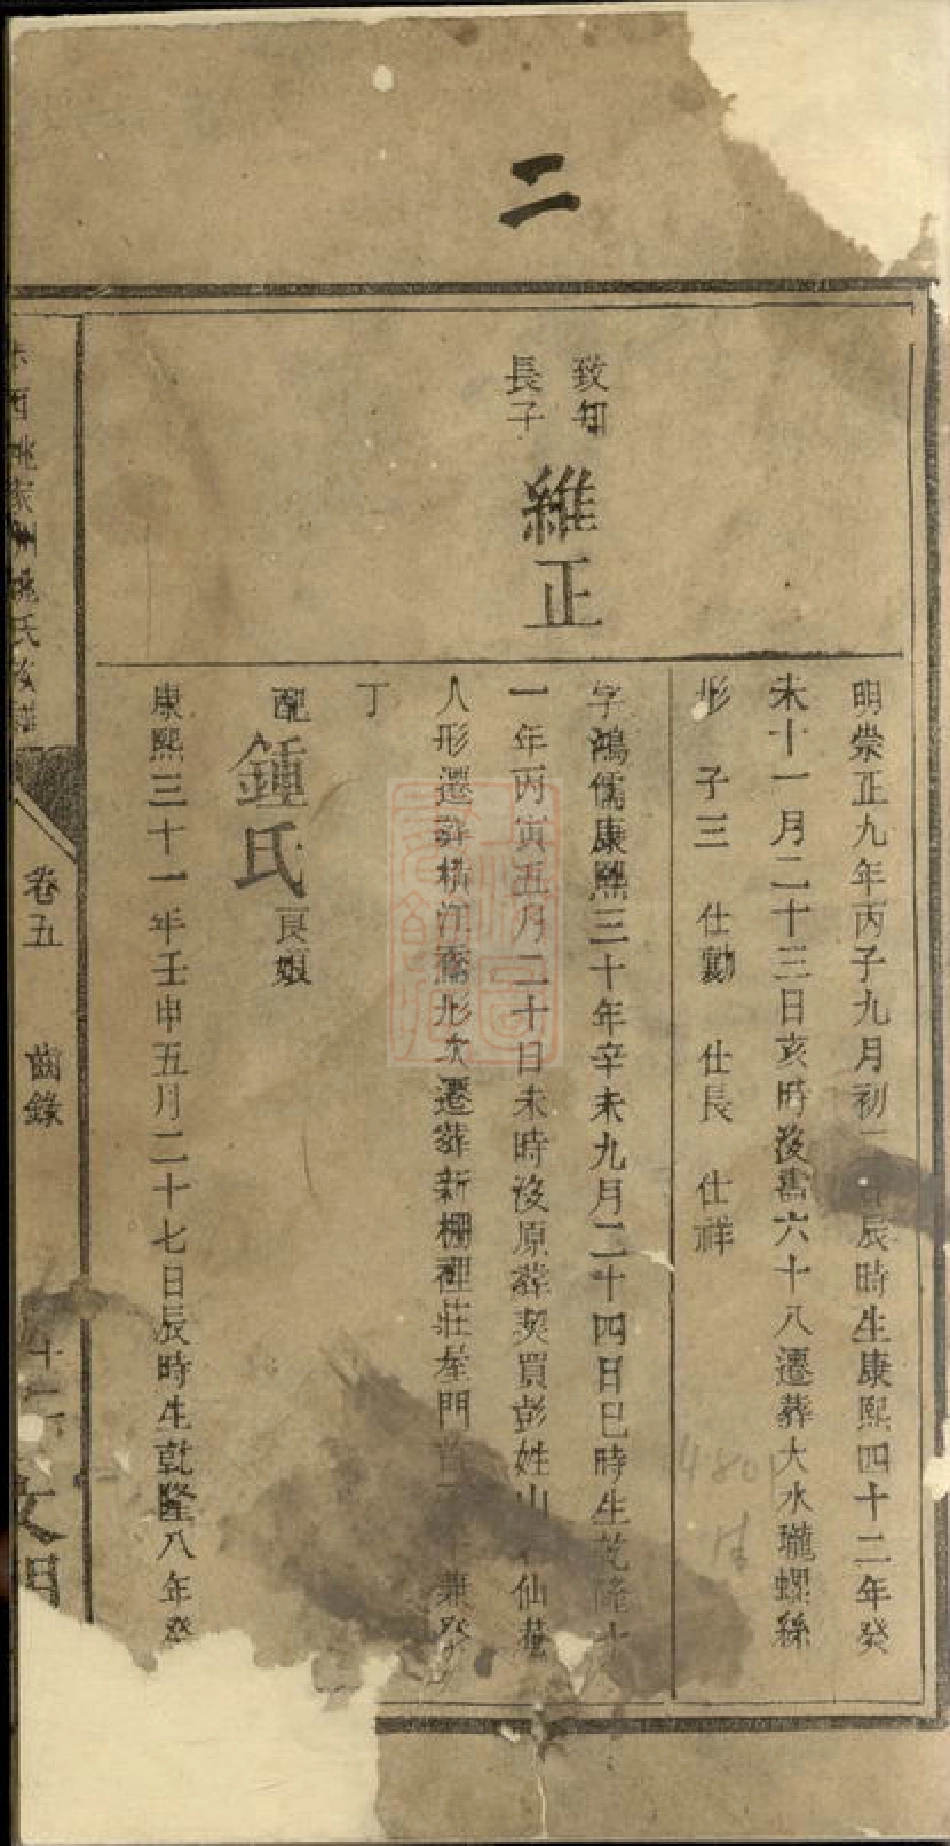 二
明崇正九年丙子九月初二日辰時生康熙四十二年癸
未十一月二十三日亥時沒壽六十八遷葬大水瓏螺絲
形 子三 仕勳 仕長 仕祥
致和
長子
維正
字鴻儒康熙三十年辛未九月二十四日巳時生乾隆十
一年丙寅五月二十日未時沒原葬契買彭姓山 仙
人形遷葬橫洋 形次遷葬新棚裡莊 門首
丁
配鍾氏良娘
康熙三十一年壬申五月二十七日辰時生乾隆八年癸
西姚家洲姚氏族譜
卷五 齒錄 十二